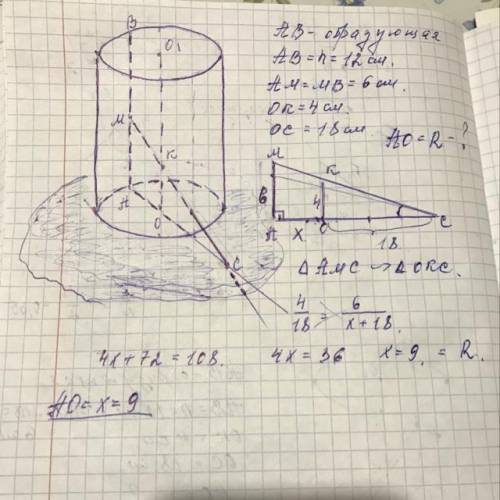 AB - образующая
AB = h = 12 см.
AM = MB = 6 см.
OK = 4 см.
OC = 18 см.
AO = R - ?
B
O₁
M
K
A
O
C
M
K
6
4
A
x
O
C
18
Δ AMC ~ Δ OKC.
4/18 = 6/(x+18).
4x + 72 = 108.
4x = 36
x = 9. = R.
AO = x = 9